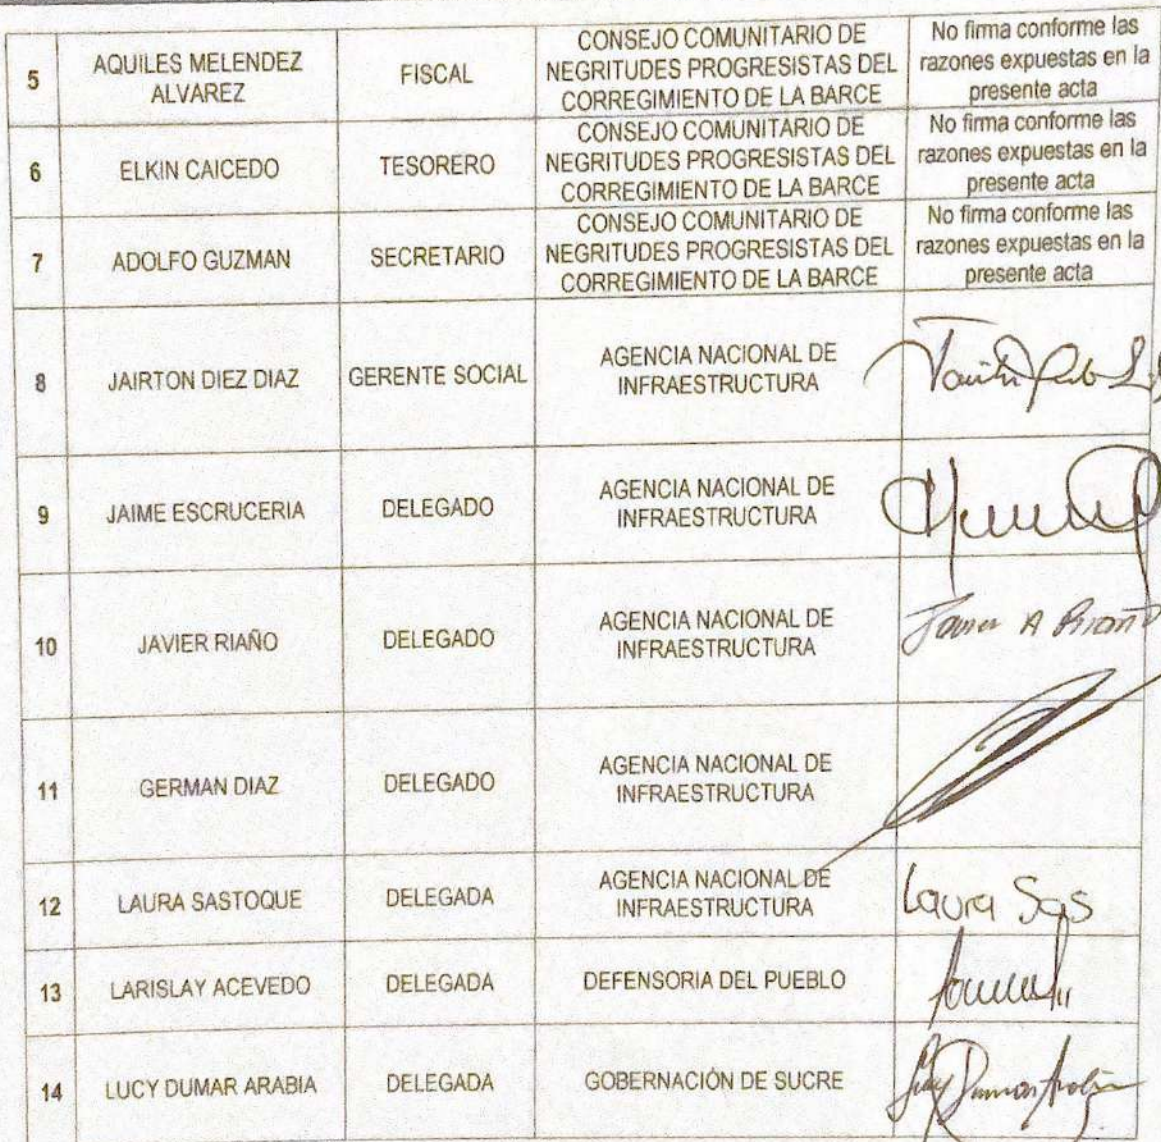 5
AQUILES MELENDEZ
ALVAREZ
FISCAL
CONSEJO COMUNITARIO DE
NEGRITUDES PROGRESISTAS DEL
CORREGIMIENTO DE LA BARCE
No firma conforme las
razones expuestas en la
presente acta
6
ELKIN CAICEDO
TESORERO
CONSEJO COMUNITARIO DE
NEGRITUDES PROGRESISTAS DEL
CORREGIMIENTO DE LA BARCE
No firma conforme las
razones expuestas en la
presente acta
7
ADOLFO GUZMAN
SECRETARIO
CONSEJO COMUNITARIO DE
NEGRITUDES PROGRESISTAS DEL
CORREGIMIENTO DE LA BARCE
No firma conforme las
razones expuestas en la
presente acta
8
JAIRTON DIEZ DIAZ
GERENTE SOCIAL
AGENCIA NACIONAL DE
INFRAESTRUCTURA
9
JAIME ESCRUCERIA
DELEGADO
AGENCIA NACIONAL DE
INFRAESTRUCTURA
10
JAVIER RIAÑO
DELEGADO
AGENCIA NACIONAL DE
INFRAESTRUCTURA
Javier A Riaño
11
GERMAN DIAZ
DELEGADO
AGENCIA NACIONAL DE
INFRAESTRUCTURA
12
LAURA SASTOQUE
DELEGADA
AGENCIA NACIONAL DE
INFRAESTRUCTURA
Laura Sas
13
LARISLAY ACEVEDO
DELEGADA
DEFENSORIA DEL PUEBLO
14
LUCY DUMAR ARABIA
DELEGADA
GOBERNACIÓN DE SUCRE
Lucy Dumar Arabia